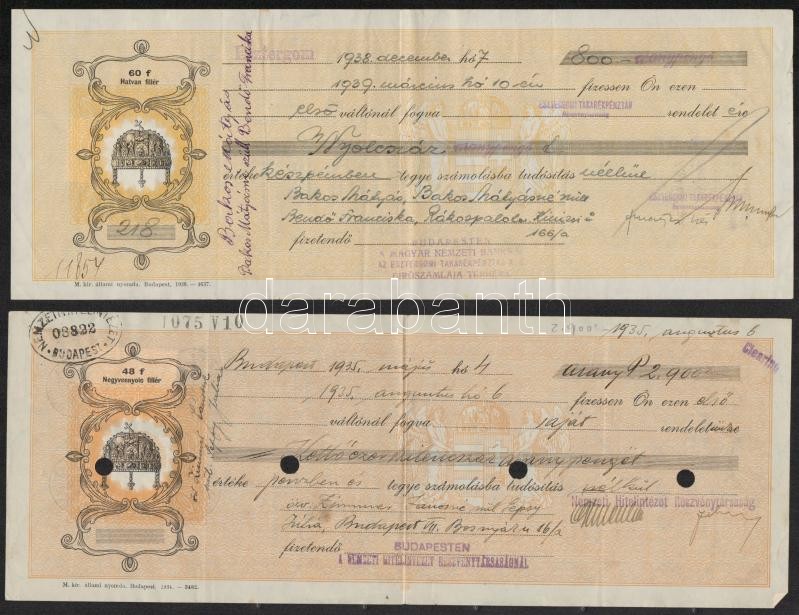 60 f
Hatvan fillér
218
11854
M. kir. állami nyomda. Budapest, 1938. — 4637.
Esztergom 1938. december hó 7 800 — aranypengő
1939. március hó 10-én fizessen Ön ezen
első váltónál fogva rendelet ére
ESZTERGOMI TAKARÉKPÉNZTÁR
Nyolcszáz aranypengő
értéke készpénzben tegye számolásba tudósítás nélkül
Bakos Mátyás, Bakos Mátyásné szül.
Bendó Franciska, Rákospalota
166/a
fizetendő
BUDAPESTEN
A MAGYAR NEMZETI BANKNÁL
AZ ESZTERGOMI TAKARÉKPÉNZTÁR R.T.
GIRÓSZÁMLÁJA TERHÉRE
darabanth
NEMZETI HITELINTÉZET
08822
BUDAPEST
1075 V10
1935. augusztus 6
Clearing
48 f
Negyvennyolc fillér
M. kir. állami nyomda. Budapest, 1934. — 3482.
Budapest 1935. május hó 4 arany P 2.900
1935. augusztus hó 6 fizessen Ön ezen első
váltónál fogva saját rendeletünkre
Kettőezerkilencszáz arany pengőt
értéke pénzben és tegye számolásba tudósítás nélkül
Nemzeti Hitelintézet Részvénytársaság
özv.
Júlia, Budapest VII. Bosnyák u 16/a
fizetendő
BUDAPESTEN
A NEMZETI HITELINTÉZET RÉSZVÉNYTÁRSASÁGNÁL